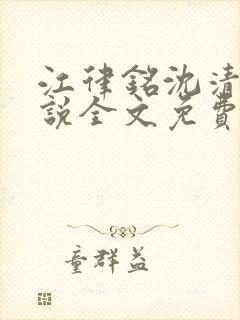 江律銘沈清
說全文免費
童群益